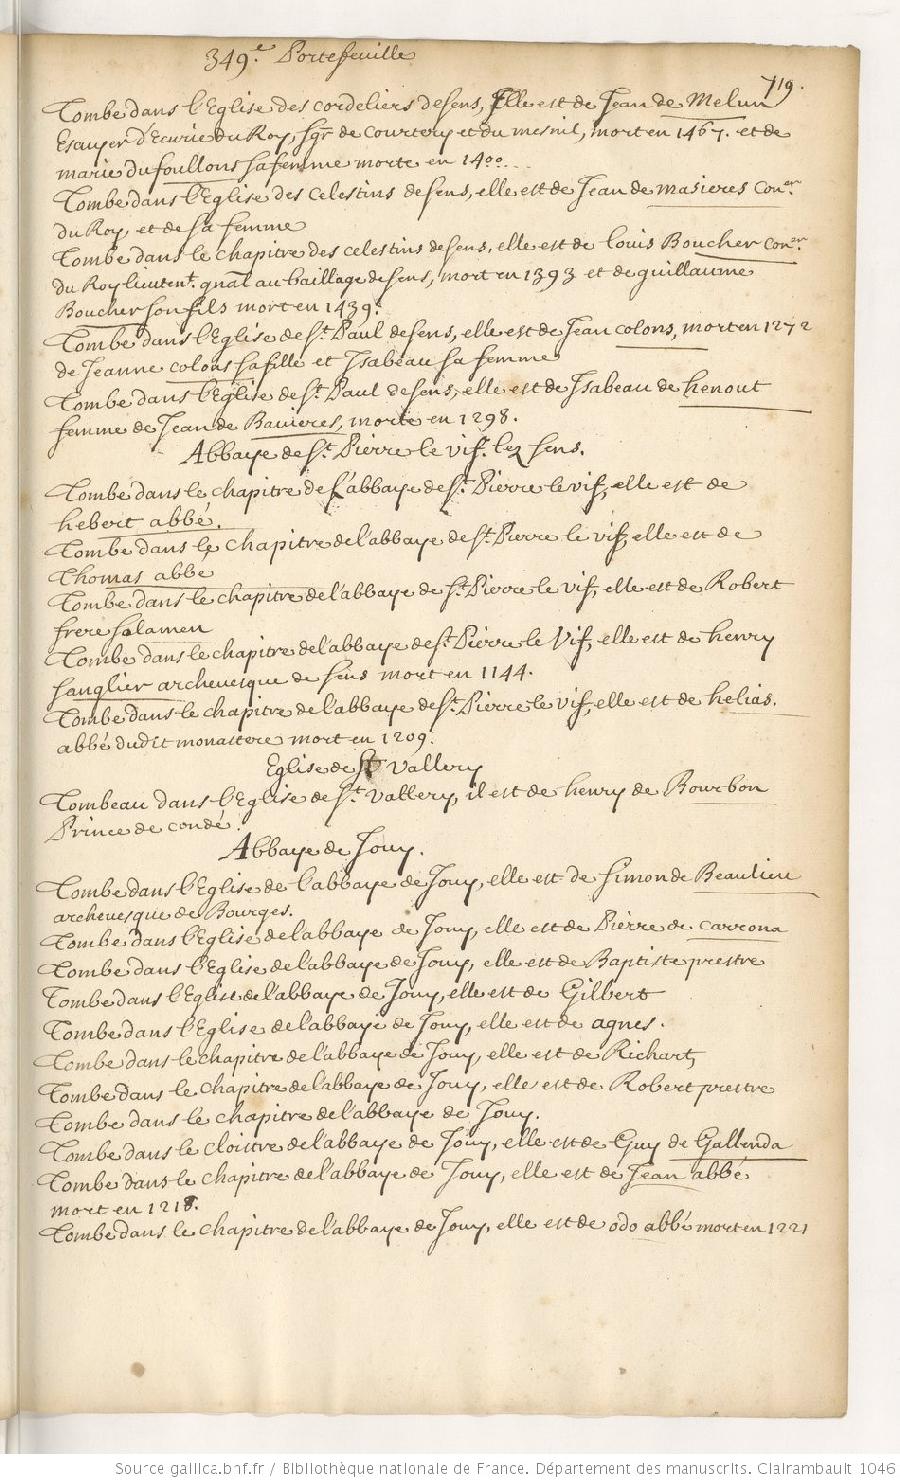 349.e Portefeuille
719.
Tombe dans l'Eglise des cordeliers de sens, Elle est de Jean de Melun
Escuyer d'Ecurie du Roy, sgr de Courtery et du mesnil, mort en 1467. et de
marie du foullons sa femme morte en 14°°...
Tombe dans l'Eglise des Celestins de sens, elle est de Jean de masieres Coner
du Roy et de sa femme
Tombe dans le chapitre des celestins de sens, elle est de louis Boucher Coner
du Roy lieutent. gnal au baillage de sens, mort en 1393 et de guillaume
Boucher son fils mort en 1439.
Tombe dans l'Eglise de st. Paul de sens, elle est de Jean colons, mort en 1272
de Jeanne colons sa fille et Isabeau sa femme
Tombe dans l'Eglise de st. Paul de sens, elle est de Isabeau de henout
femme de Jean de Bauieres, morte en 1298.
Abbaye de st. Pierre le vif. lez sens.
Tombe dans le chapitre de l'abbaye de st. Pierre le vif, elle est de
hebert abbé.
Tombe dans le chapitre de l'abbaye de st. Pierre le vif, elle est de
Thomas abbé
Tombe dans le chapitre de l'abbaye de st. Pierre le vif, elle est de Robert
frere salamen
Tombe dans le chapitre de l'abbaye de st. Pierre le Vif, elle est de henry
sanglier archeuesque de sens mort en 1144.
Tombe dans le chapitre de l'abbaye de st. Pierre le vif, elle est de helias.
abbé dudit monastere mort en 1209.
Eglise de St Vallery
Tombeau dans l'Eglise de st. Vallery, il est de henry de Bourbon
Prince de condé.
Abbaye de Jouy.
Tombe dans l'Eglise de l'abbaye de Jouy, elle est de Simon de Beaulieu
archeuesque de Bourges.
Tombe dans l'Eglise de l'abbaye de Jouy, elle est de Pierre de carrona
Tombe dans l'Eglise de l'abbaye de Jouy, elle est de Baptiste prestre
Tombe dans l'Eglise de l'abbaye de Jouy, elle est de Gilbert
Tombe dans l'Eglise de l'abbaye de Jouy, elle est de agnes.
Tombe dans le chapitre de l'abbaye de Jouy, elle est de Richart,
Tombe dans le chapitre de l'abbaye de Jouy, elle est de Robert prestre
Tombe dans le chapitre de l'abbaye de Jouy.
Tombe dans le cloistre de l'abbaye de Jouy, elle est de Guy de Gallenda
Tombe dans le chapitre de l'abbaye de Jouy, elle est de Jean abbé
mort en 1218.
Tombe dans le chapitre de l'abbaye de Jouy, elle est de odo abbé mort en 1221
Source gallica.bnf.fr / Bibliothèque nationale de France. Département des manuscrits. Clairambault 1046